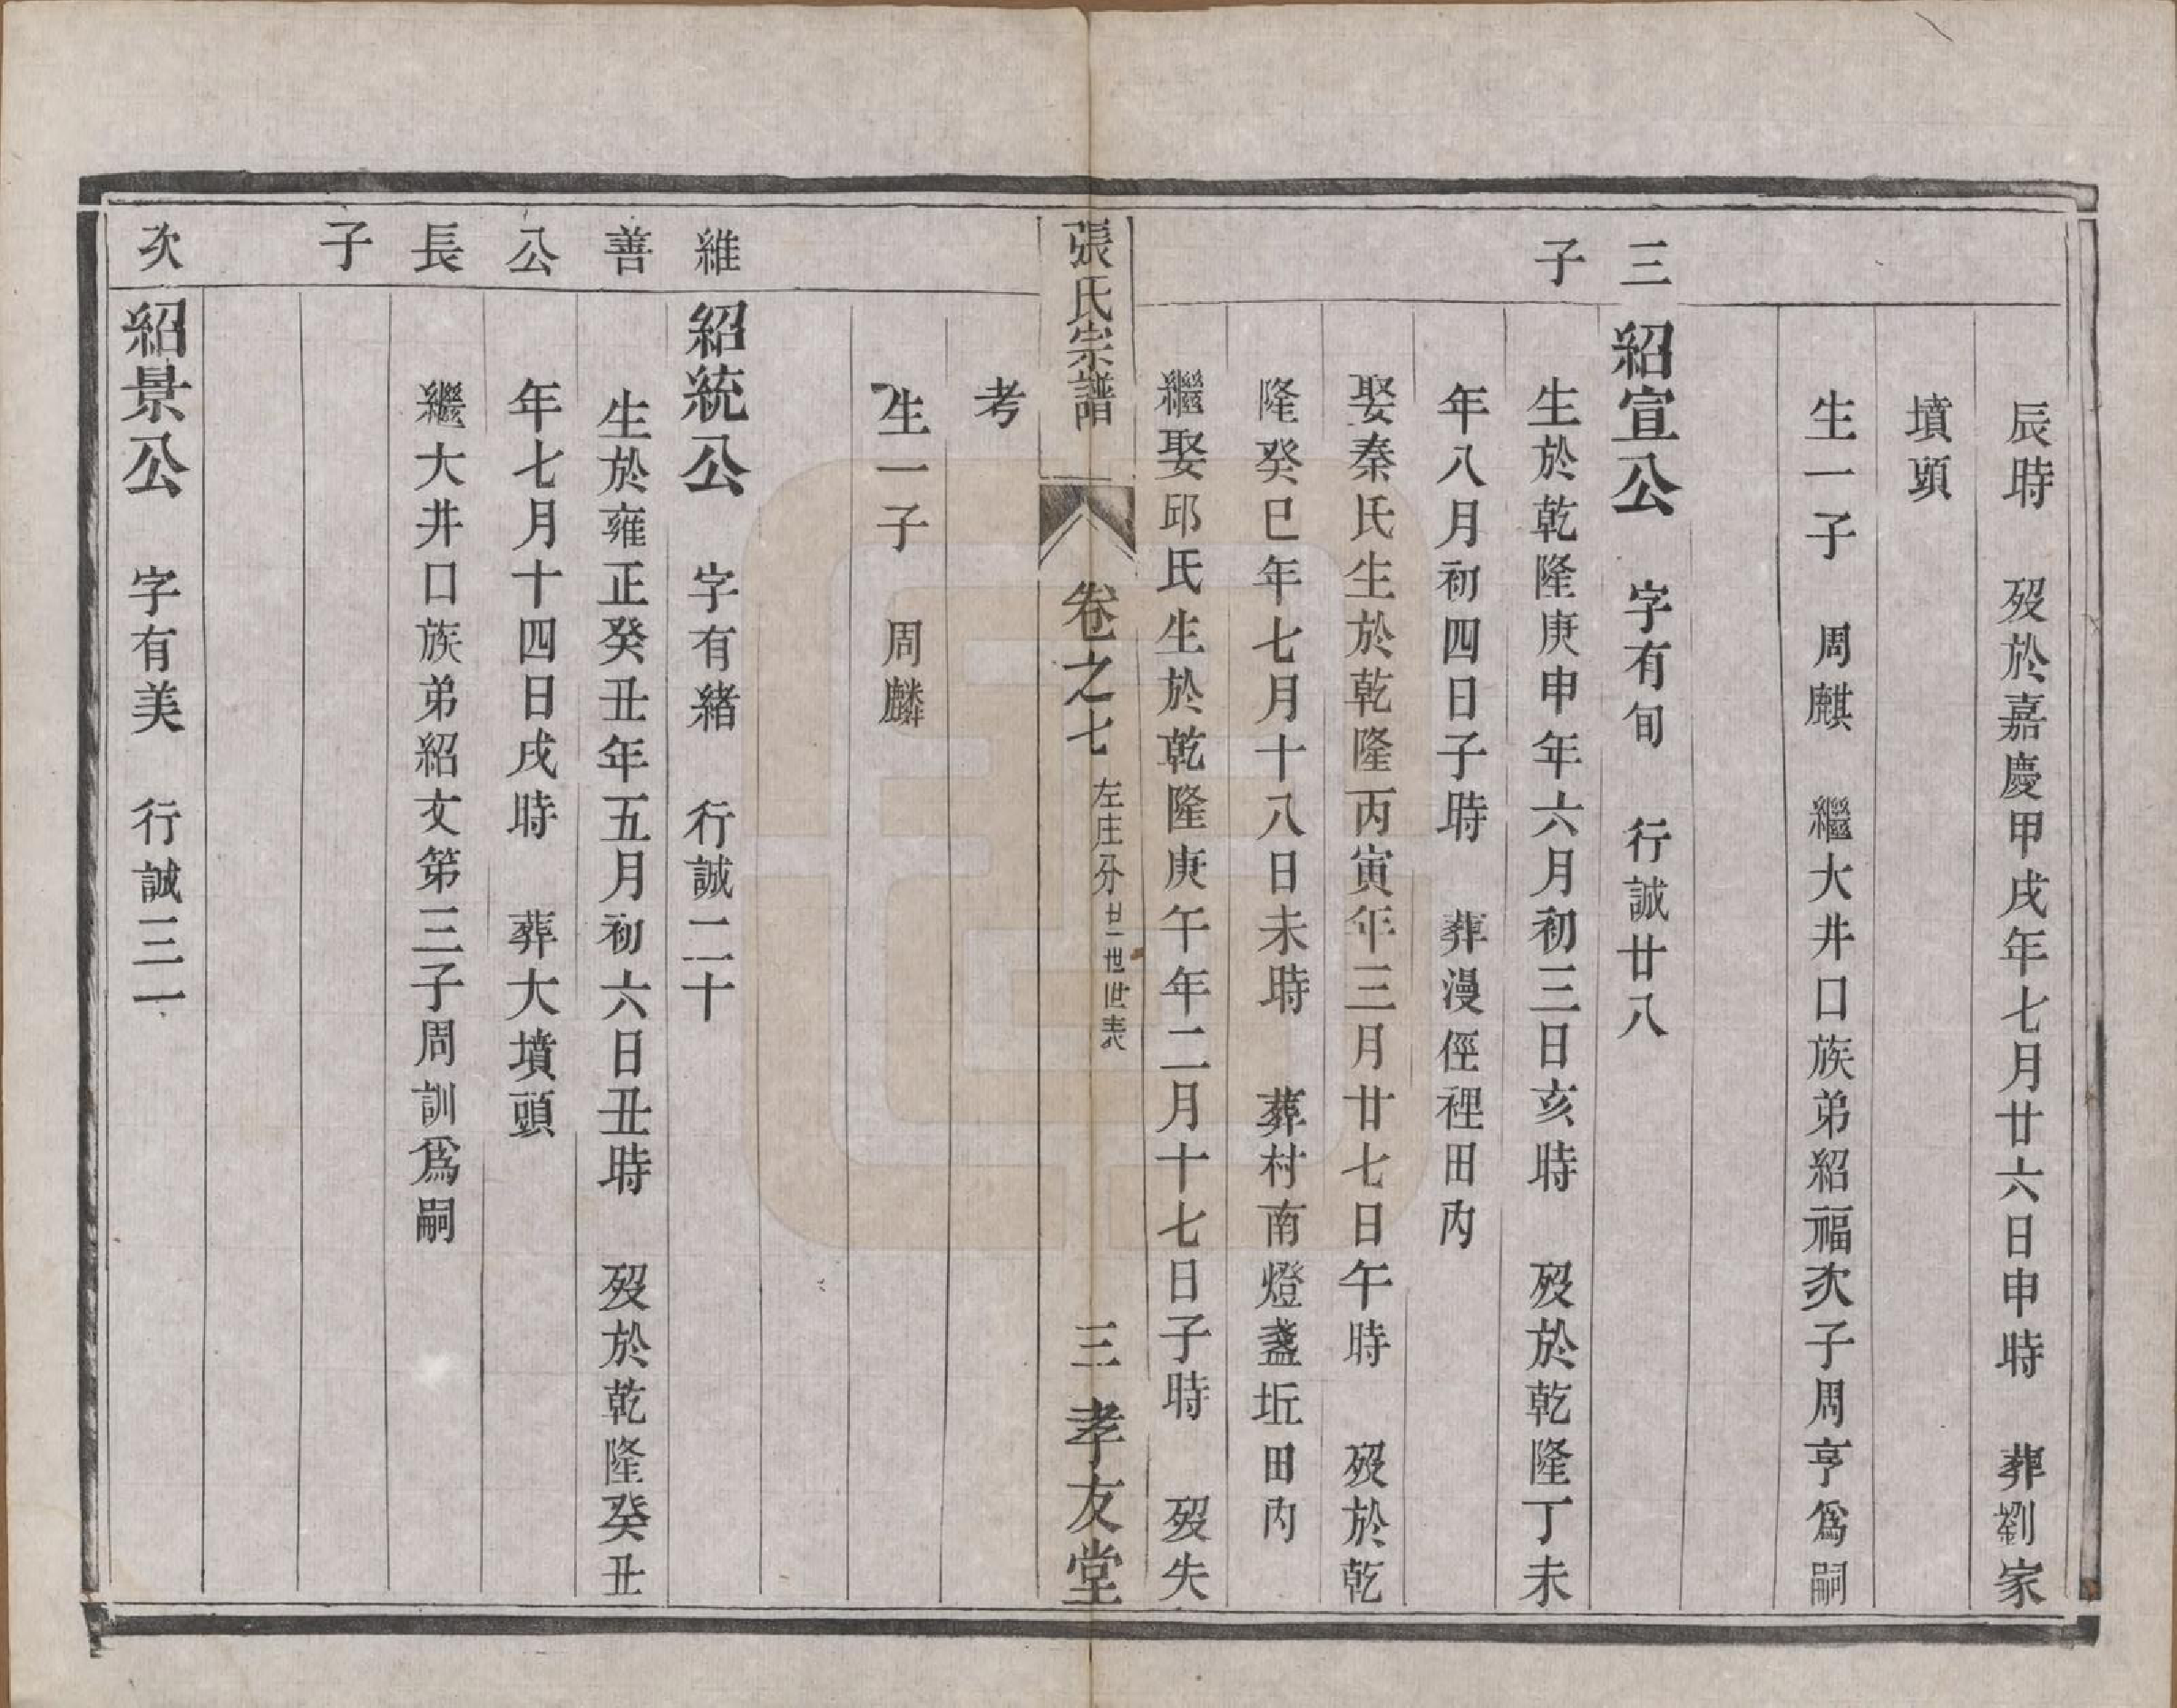 辰時　歿於嘉慶甲戌年七月廿六日申時　葬劉家
墳頭
生一子　周麒　繼大井口族弟紹福次子周亨爲嗣
三子
紹宣公　字有旬　行誠廿八
生於乾隆庚申年六月初三日亥時　歿於乾隆丁未
年八月初四日子時　葬漫俓裡田內
娶秦氏生於乾隆丙寅年三月廿七日午時　歿於乾
隆癸巳年七月十八日未時　葬村南燈盞坵田內
繼娶邱氏生於乾隆庚午年二月十七日子時　歿失
張氏宗譜　卷之七　左庄分廿一世世表　三　孝友堂
考
生一子　周麟
維善公長子
紹統公　字有緒　行誠二十
生於雍正癸丑年五月初六日丑時　歿於乾隆癸丑
年七月十四日戌時　葬大墳頭
繼大井口族弟紹文第三子周訓爲嗣
次
紹景公　字有美　行誠三一